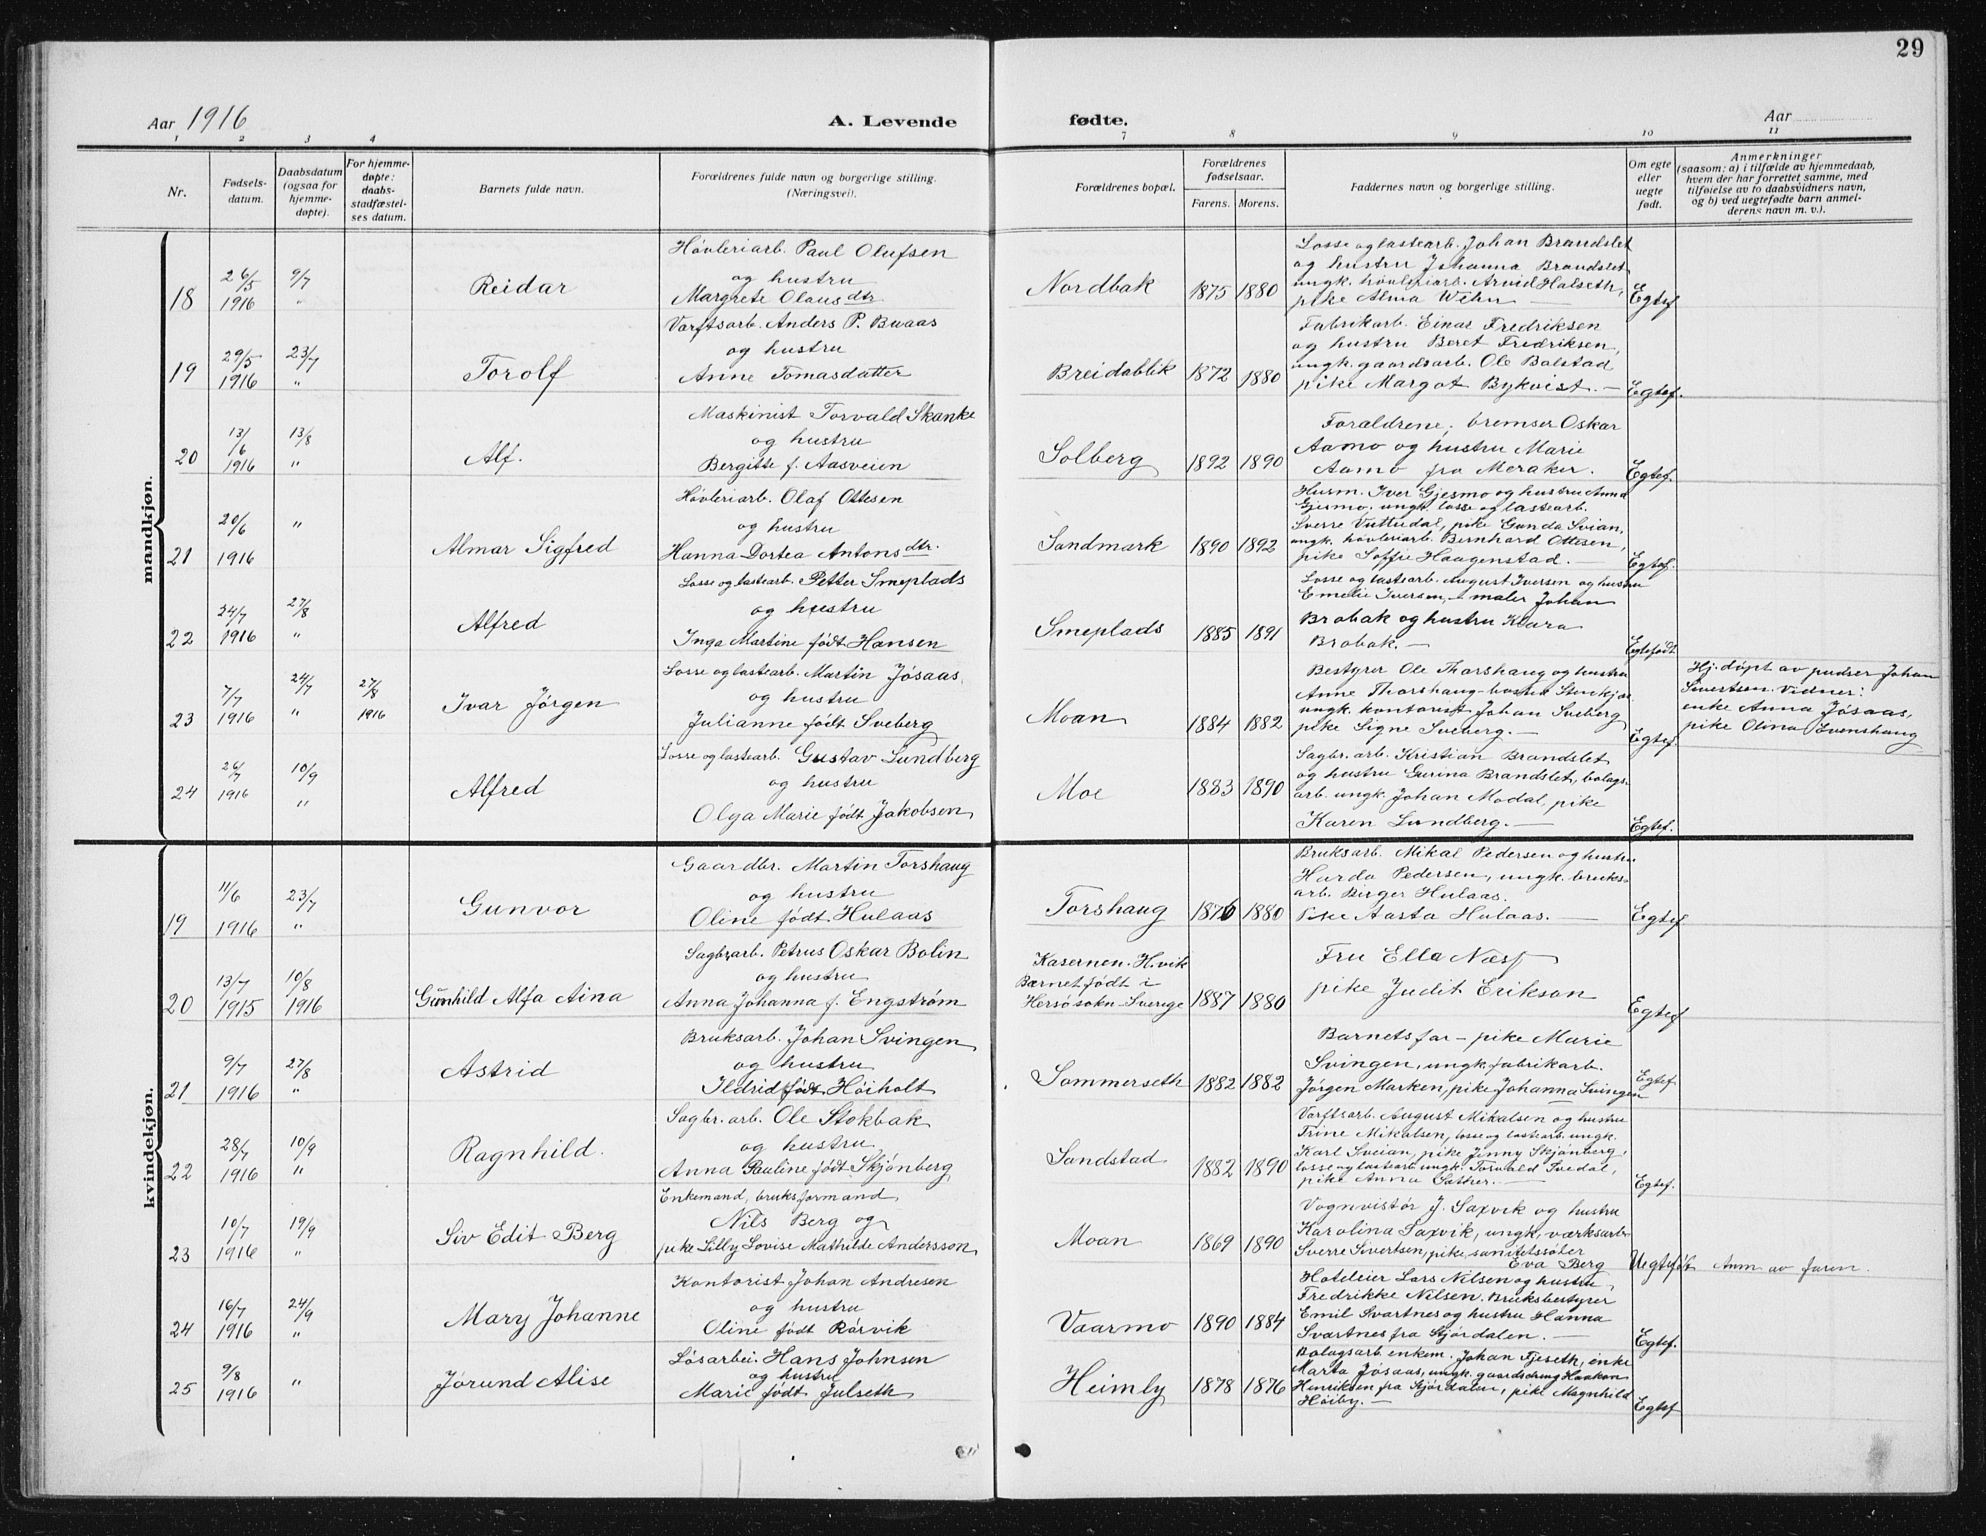 29
Aar 1916
A. Levende fødte.
Aar
1 2 3 4 7 8 9 10 11
Nr.
Fødsels-
datum.
Daabsdatum
(ogsaa for
hjemme-
døpte).
For hjemme-
døpte:
daabs-
stadfæstel-
ses datum.
Barnets fulde navn.
Forældrenes fulde navn og borgerlige stilling.
(Næringsvei).
Forældrenes bopæl.
Forældrenes
fødselsaar.
Farens. Morens.
Faddernes navn og borgerlige stilling.
Om egte
eller
uegte
født.
Anmerkninger
(saasom: a) i tilfælde av hjemmedaab,
hvem der har forrettet samme, med
tilføielse av to daabsvidners navn,
og b) ved uegtefødte barn anmel-
derens navn m. v.).
mandkjøn.
18
26/5
1916
9/7
"
Reidar
Høvleriarb. Paul Olufsen
og hustru
Margrete Olausdtr.
Nordbak
1875 1880
Losse og lastearb. Johan Brandslet
og hustru Johanna Brandslet
ungk. høvleriarb. Arvid Halseth,
pike Alma Wehn —
Egtef.
19
29/5
1916
23/7
"
Torolf
Varftsarb. Anders P. Buaas
og hustru
Anne Tomasdatter
Breidablik
1872 1880
Fabrikarb. Einar Fredriksen
og hustru Beret Fredriksen,
ungk. gaardsarb. Ole Bolstad
pike Margot Bykvist. —
Egtef.
20
13/6
1916
13/8
"
Alf.
Maskinist Torvald Skanke
og hustru
Bergitte f. Aasveien
Solberg
1892 1890
Forældrene, bremser Oskar
Aamo og hustru Marie
Aamo fra Meraker.
Egtef.
21
20/6
1916
"
Almar Sigfred
Høvleriarb. Olaf Ottesen
og hustru
Hanna Dortea Antonsdtr.
Sandmark
1890 1892
Husm. Iver Gjesmo og hustru Anna
Gjesmo, ungk. losse og lastearb.
Sverre Vuttudal, pike Gunda Svian,
ungk. høvleriarb. Bernhard Ottesen,
pike Soffie Haagenstad. —
Egtef.
22
24/7
1916
27/8
"
Alfred
Losse og lastearb. Petter Smeplads
og hustru
Inga Martine født Hansen
Smeplads
1885 1891
Losse og lastearb. August Iversen og hustru
Emelie Iversen, maler Johan
Brobak og hustru Klara
Brobak. —
Egtefødt
23
7/7
1916
24/7
"
27/8
1916
Ivar Jørgen
Losse og lastearb. Martin Jøsaas,
og hustru
Julianne født Sveberg
Moan
1884 1882
Bestyrer Ole Thorshaug og hustru
Anne Thorshaug
ungk. kontorist Johan Sveberg
pike Signe Sveberg. —
Egtef.
Hj. døpt av pudser Johan
Sivertsen. Vidner:
enke Anna Jøsaas,
pike Olina Evenshaug
24
26/7
1916
10/9
"
Alfred
Losse og lastearb. Gustav Lundberg
og hustru
Olga Marie født Jakobsen
Moe
1883 1890
Sagbr. arb. Kristian Brandslet
og hustru Gurina Brandslet, bolags-
arb. ungk. Johan Modal, pike
Karen Lundberg. —
Egtef.
kvindekjøn.
19
11/6
1916
23/7
"
Gunvor
Gaardbr. Martin Torshaug
og hustru
Oline født Hulaas
Torshaug
1876 1880
Bruksarb. Mikal Pedersen og hustru
Harda Pedersen, ungk. bruks-
arb. Birger Hulaas.
Pike Aasta Hulaas. —
Egtef
20
13/7
1915
10/8
1916
Gunhild Alfa Aina
Sagbrarb. Petrus Oskar Bolin
og hustru
Anna Johanna f. Engstrøm
Kasernen. H.vik
Barnet født i
Hersösokn Sverige
1887 1880
Fru Ella Næss
pike Judit Erikson
Egtef
21
9/7
1916
27/8
"
Astrid
Bruksarb. Johan Svingen
og hustru
Ildrid født Høiholt
Sommerseth
1882 1882
Barnets far — pike Marie
Svingen, ungk. fabrikarb.
Jørgen Marken, pike Johanna Svingen
Egtef
22
28/7
1916
10/9
"
Ragnhild.
Sagbr. arb. Ole Stokbak
og hustru
Anna Pauline født Skjønberg
Sandstad
1882 1890
Varftsarb. August Mikalsen og hustru
Trine Mikalsen, losse og lastearb. ungk.
Karl Sveian, pike Jinny Skjønberg,
losse og lastearb. ungk. Torvald Tredal,
pike Anna Sather. —
Egtef.
23
10/7
1916
19/9
"
Siv Edit Berg
Enkemand, bruksformand
Nils Berg og
pike Lilly Lovise Mathilde Andersson
Moan
1869 1890
Vognvistør J. Saxvik og hustru
Karolina Saxvik, ungk. værksarb.
Sverre Sivertsen, pike, sanitetssøster
Eva Berg
Uegtefødt
Anm av faren.
24
16/7
1916
24/9
"
Mary Johanne
Kontorist Johan Andresen
og hustru
Oline født Rørvik
Vaarmo
1890 1884
Hoteleier Lars Nilsen og hustru
Fredrikke Nilsen. Bruksbestyrer
Emil Svartnes og hustru Hanna
Svartnes fra Stjørdalen. —
Egtef.
25
9/8
1916
"
Jørund Alise
Løsarbei. Hans Johnsen
og hustru
Marie født Julseth
Heimly
1878 1876
Bolagsarb. enkem. Johan Fjeseth, enke
Marta Jøsaas, ungk. gaardsdreng Haakon
Henriksen fra Stjørdalen, pike Magnhild
Høiby. —
Egtef